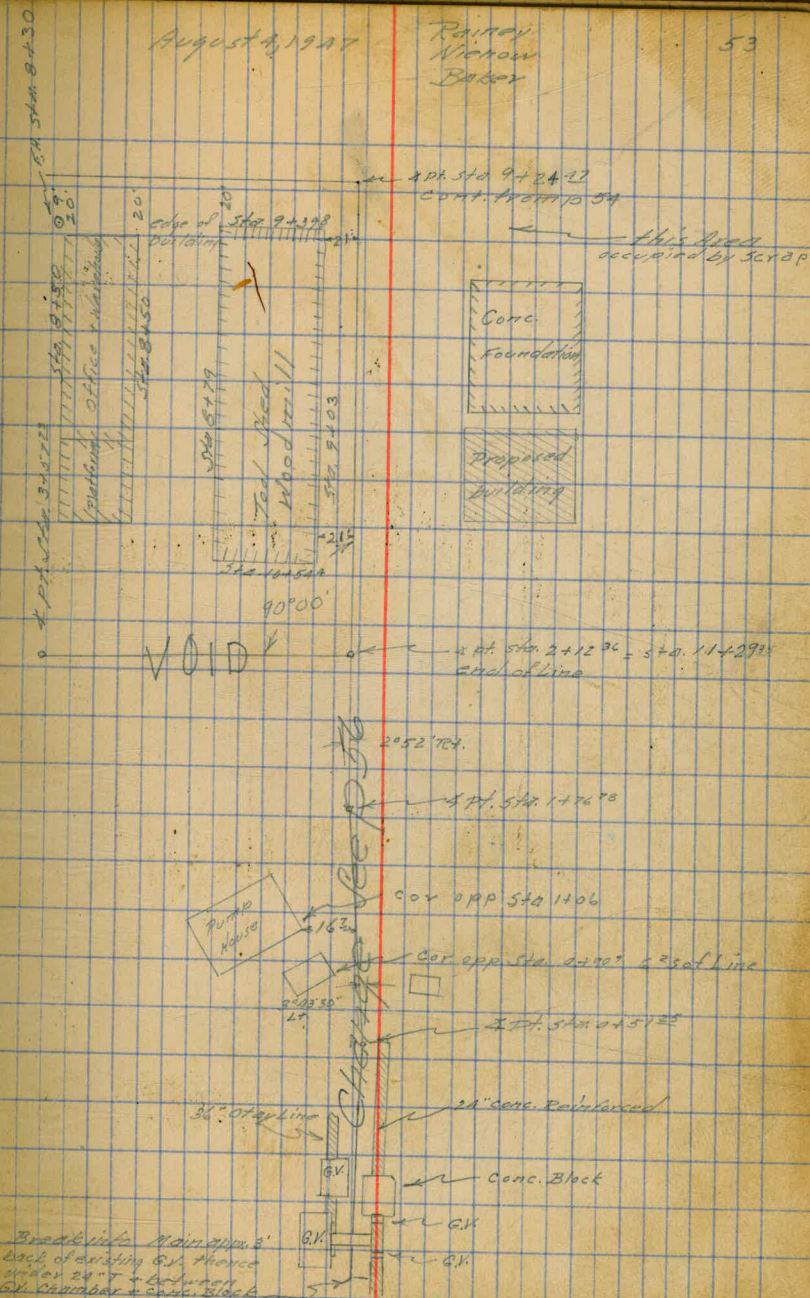 August 4, 1947
Rainey
Nienow
Baker
53
F.H. Sta. 8+30
∡ pt. sta 9+24 12
cont. from p 54
this Area
occupied by scrap
9'
20'
20'
20'
edge of
building
Sta 9+39
21
Sta. 8+30
Office +
Platform
Sta 8+50
Sta 8+79
Tool Shed
Woodmill
Sta. 9+03
Conc.
Foundation
Proposed
building
21
∡ Pt. Sta.
90°00'
VOID
∡ pt. sta. 2+12 36 = sta. 11+29 35
end of Line
2°52' Rt.
∡ Pt. Sta. 1+76 78
Change See P 56
Pump
House
cor opp Sta 1+06
16
Cor opp. Sta. 0+90 of Line
30'
Lt.
∡ Pt. Sta. 0+51
36" Otay Line
24" Conc. Reinforced
G.V.
Conc. Block
G.V.
G.V.
G.V.
Break into Main appx. 3'
back of existing G.V. thence
under 24" T + between
G.V. Chamber + Conc. Block